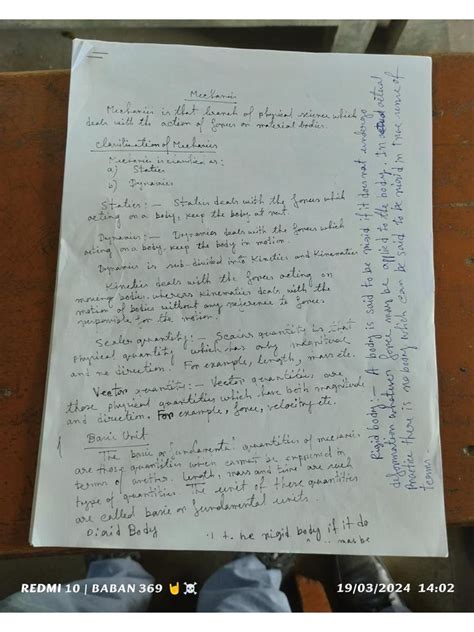 Mechanics
Mechanics is that branch of physical science which
deals with the action of forces on material bodies.
Classification of Mechanics
Mechanics is classified as:
a) Statics
b) Dynamics
Statics:— Statics deals with the forces which
acting on a body, keep the body at rest.
Dynamics:— Dynamics deals with the forces which
acting on a body, keep the body in motion.
Dynamics is sub divided into Kinetics and Kinematics
Kinetics deals with the forces acting on
moving bodies whereas kinematics deals with the
motion of bodies without any reference to forces
responsible for the motion.
Scaler quantity:— Scaler quantity is that
physical quantity which has only magnitude
and no direction. For example, length, mass etc.
Vector quantity:— Vector quantities are
those physical quantities which have both magnitude
and direction. For example, force, velocity etc.
Basic Unit
The basic or fundamental quantities of mechanics
are those quantities which cannot be expressed in
terms of another. Length, mass and time are such
type of quantities. The unit of these quantities
are called basic or fundamental units.
Rigid Body
be rigid body if it do
may be
Rigid body:— A body is said to be rigid if it does not undergo
deformation whatever force may be applied to the body. In actual
practice there is no body which can be said to be rigid in true sense of
terms.
REDMI 10 | BABAN 369 🤘☠️
19/03/2024 14:02